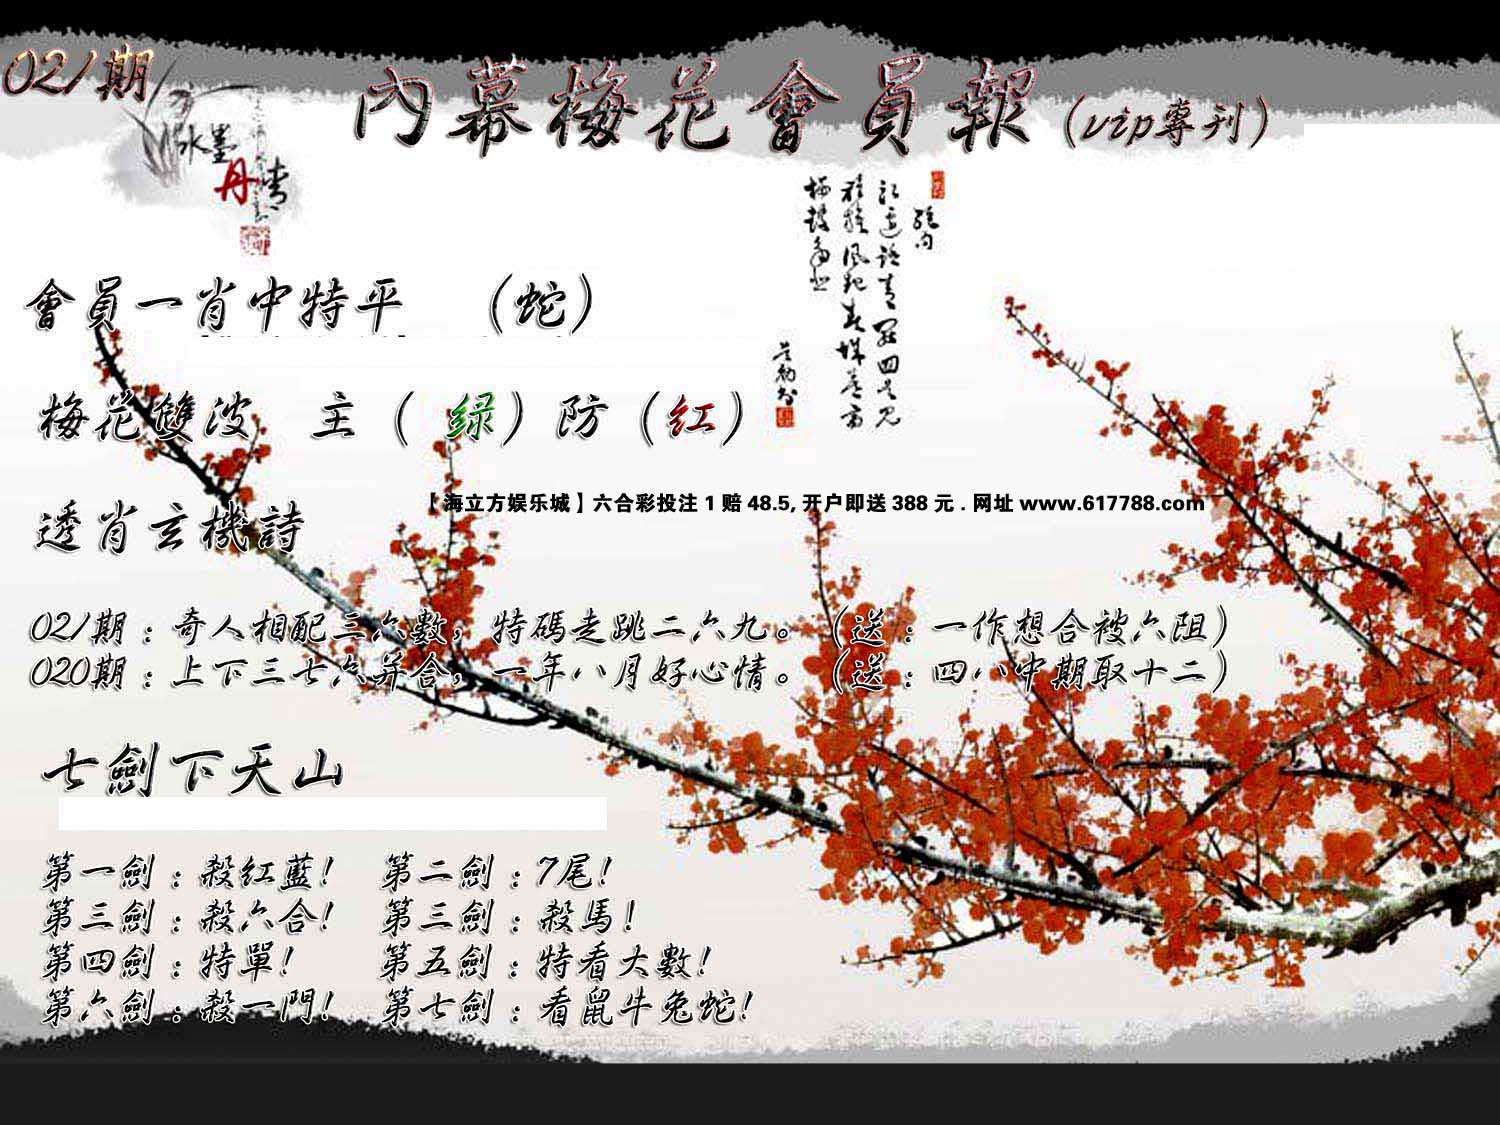 021期
內幕梅花會員報（vip專刊）
水墨
丹青
絕句
會員一肖中特平 （蛇）
梅花雙波 主（绿）防（红）
【海立方娱乐城】六合彩投注1赔48.5,开户即送388元.网址www.617788.com
透肖玄機詩
021期：奇人相配三六數，特碼走跳二六九。（送：一作想合被六阻）
020期：上下三七六并合，一年八月好心情。（送：四八中期取十二）
七劍下天山
第一劍：殺红藍！ 第二劍：7尾！
第三劍：殺六合！ 第三劍：殺馬！
第四劍：特單！ 第五劍：特看大數！
第六劍：殺一門！ 第七劍：看鼠牛兔蛇！